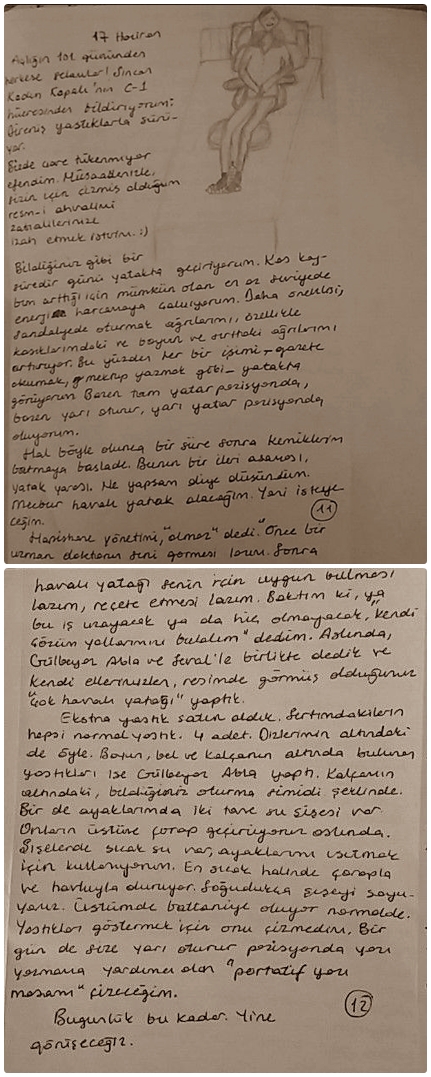 17 Haziran
Açlığın 101. gününden
herkese selamlar! Sincan
Kadın Kapalı'nın C-1
hücresinden bildiriyorum:
Direniş yastıklarla sürü-
yor.
Bizde çare tükenmiyor
efendim. Müsaadenizle,
sizin için çizmiş olduğum
resm-i ahvalimi
zatıalilerinize
izah etmek isterim. :)
Bildiğiniz gibi bir
süredir günü yatakta geçiriyorum. Kas kay-
bım arttığı için mümkün olan en az seviyede
enerji harcamaya çalışıyorum. Daha önemlisi,
sandalyede oturmak ağrılarımı, özellikle
kasıklarımdaki ve boyun ve sırttaki ağrılarımı
artırıyor. Bu yüzden her bir işimi - gazete
okumak, mektup yazmak gibi - yatakta
görüyorum. Bazen tam yatar pozisyonda,
bazen yarı oturur, yarı yatar pozisyonda
oluyorum.
Hal böyle olunca bir süre sonra kemiklerim
batmaya başladı. Bunun bir ileri aşaması,
yatak yarası. Ne yapsam diye düşündüm.
Mecbur havalı yatak alacağım. Yani isteye-
ceğim.
11
Hapishane yönetimi, "olmaz" dedi. "Önce bir
uzman doktorun seni görmesi lazım. Sonra
havalı yatağı senin için uygun bulması
lazım, reçete etmesi lazım. Baktım ki, ya
bu iş uzayacak ya da hiç olmayacak, "kendi
çözüm yollarımızı bulalım" dedim. Aslında,
Gülbeyaz Abla ve Seval'le birlikte dedik ve
kendi ellerimizlen, resimde görmüş olduğunuz
"çok havalı yatağı" yaptık.
Ekstra yastık satın aldık. Sırtımdakilerin
hepsi normal yastık. 4 adet. Dizlerimin altındaki
de öyle. Boyun, bel ve kalçanın altında bulunan
yastıkları ise Gülbeyaz Abla yaptı. Kalçanın
altındaki, bildiğiniz oturma simidi şeklinde.
Bir de ayaklarımda iki tane su şişesi var.
Onların üstüne çorap geçiriyoruz aslında.
Şişelerde sıcak su var, ayaklarımı ısıtmak
için kullanıyorum. En sıcak halinde çorapla
ve havluyla duruyor. Soğudukça şişeyi soyu-
yoruz. Üstümde battaniye oluyor normalde.
Yastıkları göstermek için onu çizmedim. Bir
gün de size yarı oturur pozisyonda yazı
yazmama yardımcı olan "portatif yazı
masamı" çizeceğim.
12
Bugünlük bu kadar. Yine
görüşeceğiz.